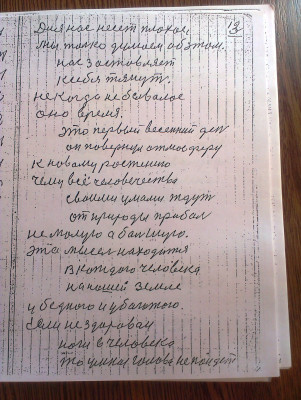 13
Для нас несет плохое,
мы только думаем об этом.
нас заставляет
к себе тянут.
некогда небывалое
оно время.
это первый весенний ден
он повернул атмосферу
к новому ростению
чему всё человечества
своими умами ждут
от природы прибал
не молую а балшую.
эта мысел находится
в каждого человека
на нашей земле
у бедного и у богатого.
если не здороваи
ноги в человека
то умная голова не пойдет